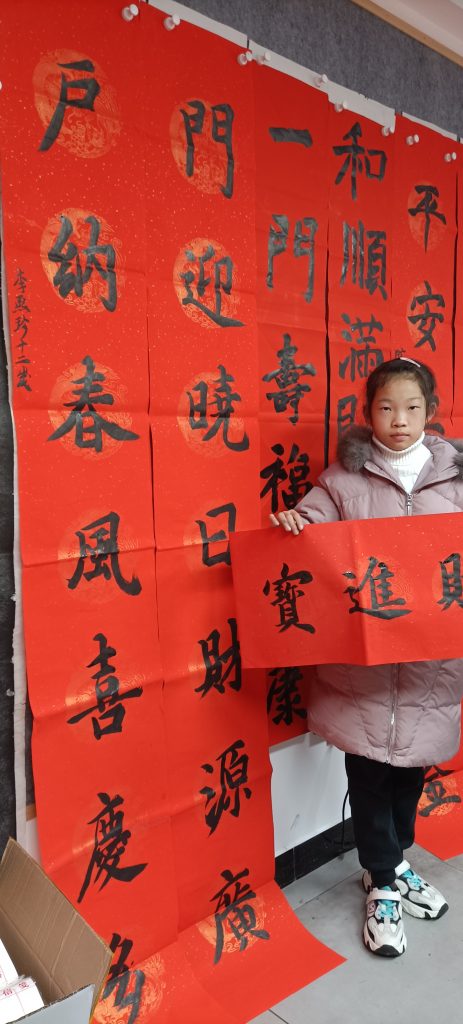 平安
金
和順滿
一門壽福康
門迎曉日財源廣
戶納春風喜慶多
李珍十二歲
財進寶